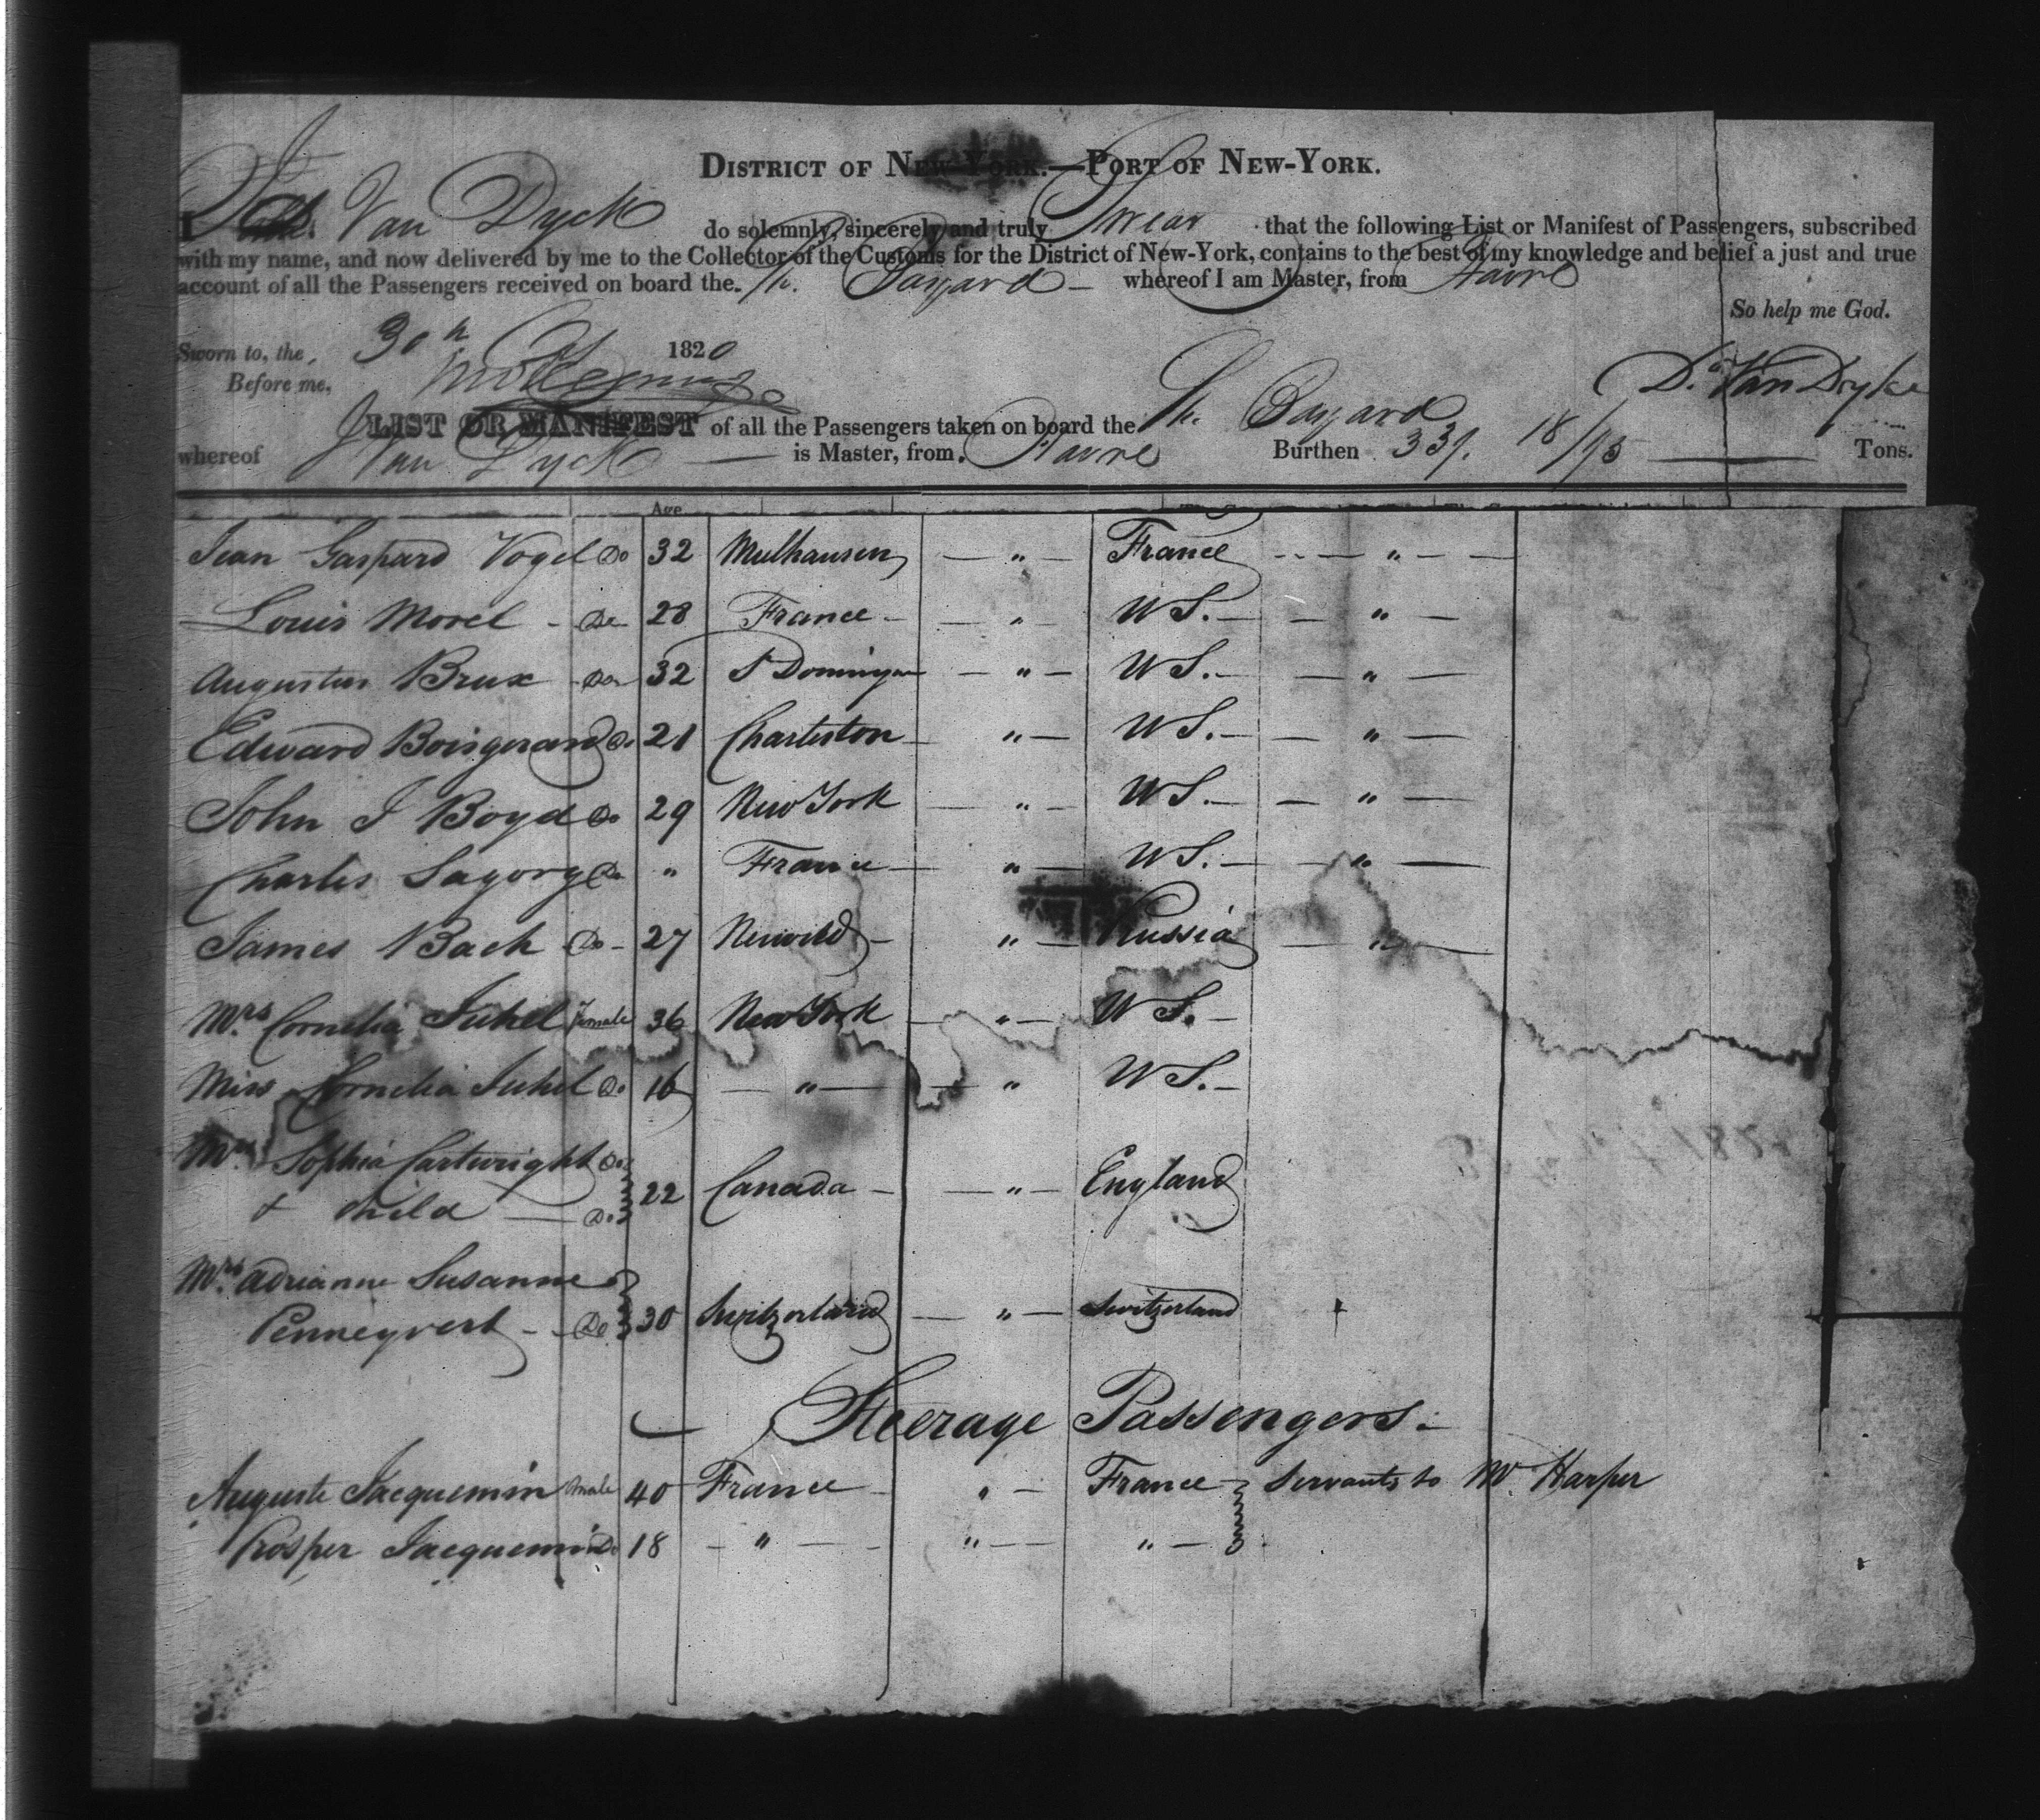 DISTRICT OF NEW-YORK.—PORT OF NEW-YORK.
I Van Dyck do solemnly, sincerely and truly Swear that the following List or Manifest of Passengers, subscribed
with my name, and now delivered by me to the Collector of the Customs for the District of New-York, contains to the best of my knowledge and belief a just and true
account of all the Passengers received on board the Sh. Bayard whereof I am Master, from Havre
So help me God.
Sworn to, the 30th 1820
Before me,
D. Van Dyke
LIST OR MANIFEST of all the Passengers taken on board the Sh. Bayard
whereof J Van Dyck is Master, from Havre Burthen 339. 18/95 Tons.
Age
Jean Gaspard Vogel Do 32 Mulhausen — " — France — " —
Louis Morel - Do 28 France — " — US. — " —
Augustus Brux - Do 32 St Domingue — " — US. — " —
Edward Boisgerard Do 21 Charleston — " — US. — " —
John J Boyd Do 29 New York — " — US. — " —
Charles Sagory Do " France — " — US. — " —
James Bach - Do - 27 Neuwied — " — Russia — " —
Mrs Cornelia Juhel Female 36 New York — " — US. —
Miss Cornelia Juhel Do 16 — " — — " US. —
Mrs Sophia Cartwright Do
& Child — Do 22 Canada — " — England
Mrs Adrianne Susanne
Penneyvert - Do 30 Switzerland — " — Switzerland
Steerage Passengers.
Auguste Jacquemin Male 40 France " — France Servants to Mr. Harper
Prosper Jacquemin Do 18 — " — " — " —